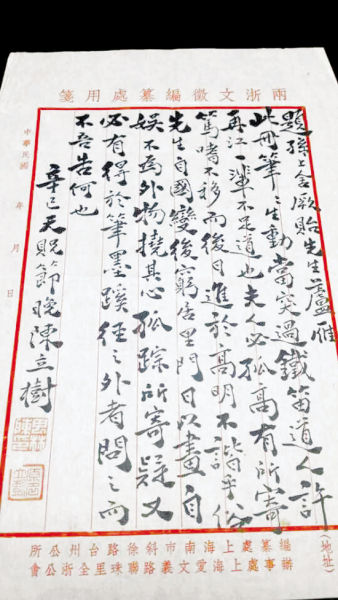 兩浙文徵編纂處用箋
題孫上舍厥貽先生蘆雁
此冊筆筆生動當突過鐵笛道人許
再江一輩不足道也夫人必孤高有所寄
篤嗜不移而後日進於高明不諧乎俗
先生自國變後窮居里門日以畫自
娛不為外物撓其心孤踪所寄疑又
必有得於筆墨蹊徑之外者問之而
不吾告何也
辛巳天貺節晚陳立樹
中華民國 年 月 日
(地址)
編纂處上海南市斜徐路台州公所
辦事處上海愛文義路聯珠里全浙公會